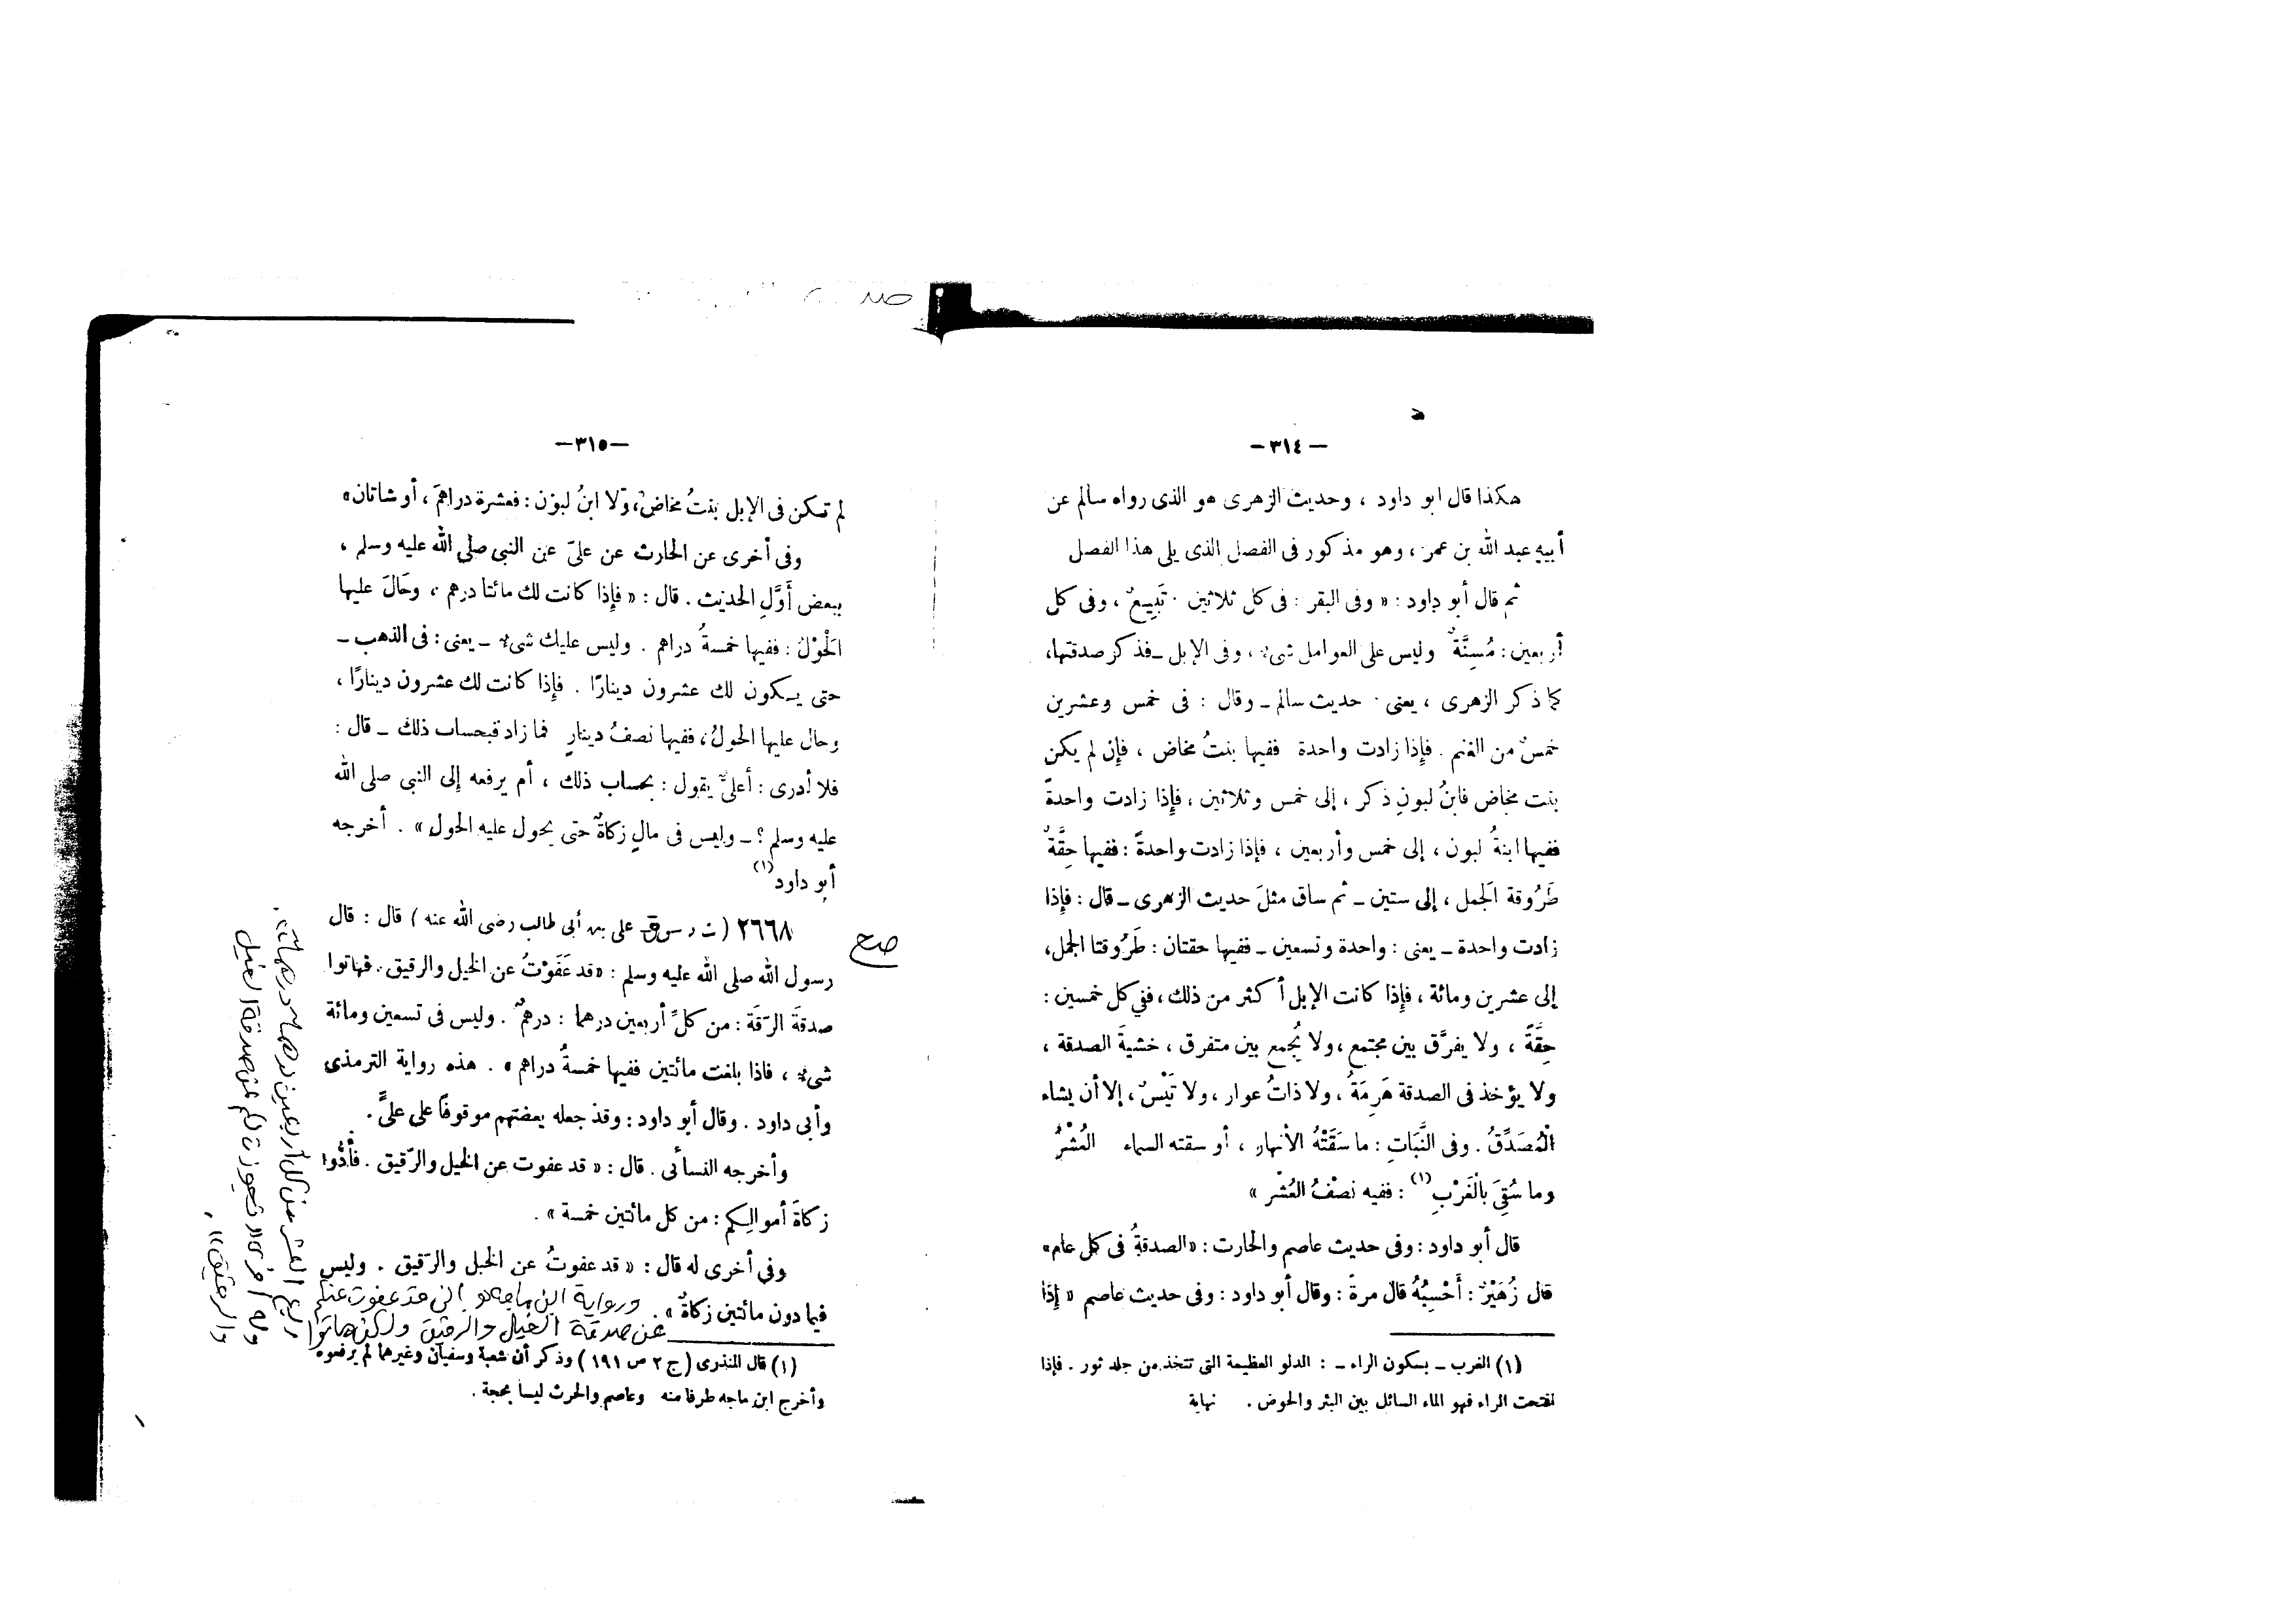 — ٣١٤ —
هكذا قال ابو داود ، وحديث الزهرى هو الذى رواه سالم عن
أبيه عبد الله بن عمر ، وهو مذكور فى الفصل الذى يلى هذا الفصل
ثم قال أبو داود : « وفى البقر : فى كل ثلاثين تَبِيعٌ ، وفى كل
أربعين : مُسِنَّةٌ وليس على العوامل شىء ، وفى الإبل ــ فذكر صدقتها،
كما ذكر الزهرى ، يعنى حديث سالم ــ وقال : فى خمس وعشرين
خمسٌ من الغنم . فإِذا زادت واحدة ففيها بنتُ مخاض ، فإن لم يكن
بنت مخاض فابنُ لبونِ ذكر ، إلى خمس وثلاثين ، فإِذا زادت واحدةً
ففيها ابنةُ لبون ، إلى خمس وأربعين ، فإذا زادت واحدةً : ففيها حِقَّةٌ
طَرُوقة الَجمل ، إلى ستين ــ ثم ساق مثلَ حديث الزهرى ــ قال : فإِذا
زادت واحدة ــ يعنى : واحدة وتسعين ــ ففيها حقتان : طَرُوقتا الجمل،
إلى عشرين ومائة ، فإِذا كانت الإبل أكثر من ذلك ، ففي كل خمسين :
حِقَّةً ، ولا يفرَّق بين مجتمع ، ولا يُجمع بين متفرق ، خشيةَ الصدقة ،
ولا يؤخذ فى الصدقة هَرِمَةٌ ، ولا ذاتُ عوار ، ولا تَيْسٌ ، إلا أن يشاء
الْمُصَدِّقُ . وفى النَّبَاتِ : ما سَقَتْهُ الأنهار ، أو سقته السماء العُشْرُ
وما سُقِىَ بالْغَرْبِ (١) : ففيه نصْفُ العُشْر »
قال أبو داود : وفى حديث عاصم والحارث : «الصدقةُ فى كل عام»
قال زُهَيْرٌ : أَحْسِبُهُ قال مرةً : وقال أبو داود : وفى حديث عاصم « إِذَا
(١) الغرب ــ بسكون الراء ــ : الدلو العظيمة التى تتخذ من جلد ثور . فإذا
فتحت الراء فهو الماء السائل بين البئر والحوض . نهاية
—٣١٥—
لم تكن فى الإبل بنتُ مخاضٍ، ولا ابنُ لبون : فعشرة دراهمَ ، أو شاتان»
وفى أخرى عن الحارث عن علىّ عن النبى صلى الله عليه وسلم ،
ببعض أَوَّلِ الحديث . قال : « فإِذا كانت لك مائتا درهم ، وحَالَ عليها
الَحْوْلُ : ففيها خمسةُ دراهم . وليس عليك شىء ــ يعنى : فى الذهب ــ
حتى يكون لك عشرون دينارًا . فإِذا كانت لك عشرون دينارًا ،
وحال عليها الحولُ ، ففيها نصفُ دينارٍ فما زاد فبحساب ذلك ــ قال :
فلا أدرى : أعلىٌّ يقول : بحساب ذلك ، أم يرفعه إلى النبى صلى الله
عليه وسلم ؟ ــ وليس فى مالٍ زكاةٌ حتى يحول عليه الحول» . أخرجه
أبو داود (١)
صح
٢٦٦٨ ( ت د س ق ــ على بن أبى طالب رضى الله عنه ) قال : قال
رسول الله صلى الله عليه وسلم : «قد عَفَوْتُ عن الخيل والرقيق . فهاتوا
صدقةَ الرّقَة : من كلِّ أربعين درهما : درهمٌ . وليس فى تسعين ومائة
شىء ، فاذا بلغت مائتين ففيها خمسةُ دراهم » . هذه رواية الترمذى
وأبى داود . وقال أبو داود : وقد جعله بعضهم موقوفًا على علىٍّ .
وأخرجه النسائى . قال : « قد عفوت عن الخيل والرّقيق . فأَدُّوا
زكاةَ أموالكم : من كل مائتين خمسة » .
وفى أخرى له قال : « قد عفوتُ عن الخيل والرّقيق . وليس
فيما دون مائتين زكاةٌ » .
ورواية ابن ماجه « إنى قد عفوت عنكم
عن صدقة الخيل والرقيق ولكن هاتوا
ربع العشر من كل أربعين درهما درهما».
وله أخرى «تجوزت لكم عن صدقة الخيل
والرقيق».
(١) قال المنذرى ( ج ٢ ص ١٩١ ) وذكر أن شعبة وسفيان وغيرهما لم يرفعوه
وأخرج ابن ماجه طرفا منه وعاصم والحرث ليسا بحجة .